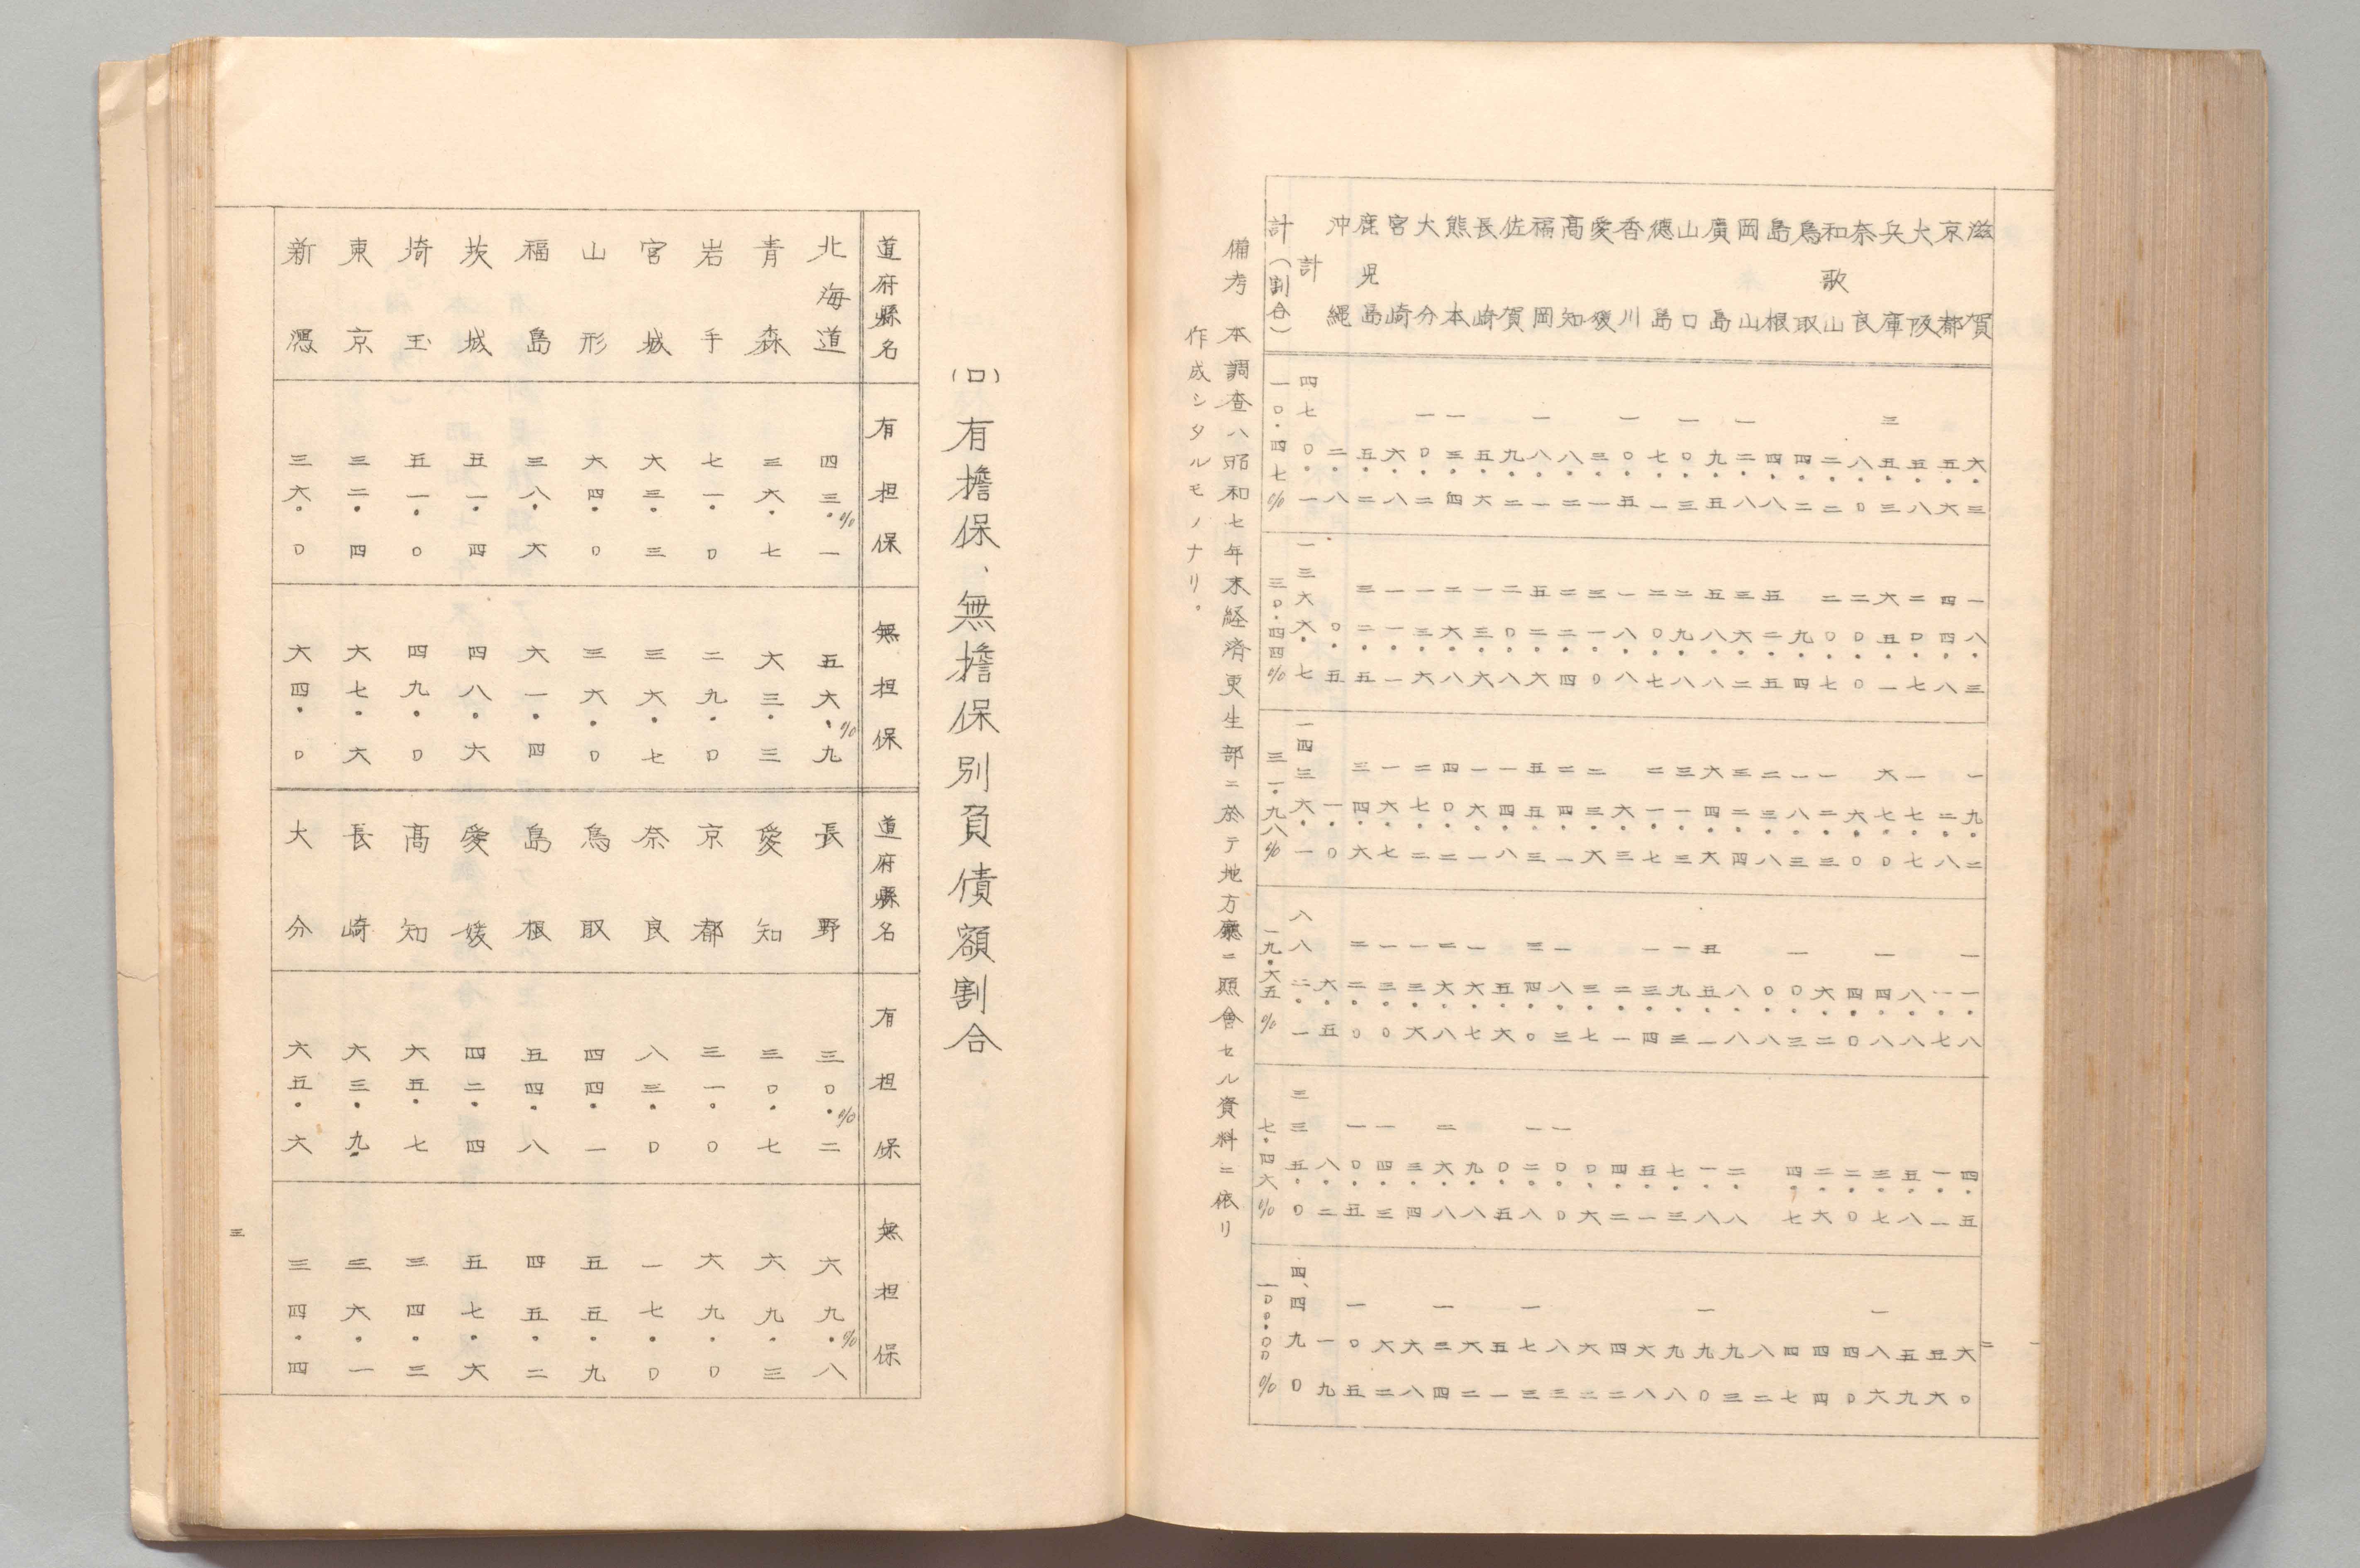 二
滋賀 六.三 一八.三 一九.二 一一.八 四.五 六〇
京都 五.六 四四.八 二.八 一.七 一.一 五六
大阪 五.八 二〇.七 一七.七 八.八 五.八 五九
兵庫 三五.三 六五.一 六七.〇 一四.八 三.七 一八六
奈良 八.〇 二〇.〇 六.〇 四.〇 二.〇 四〇
和歌山 二.二 二〇.七 一二.三 六.二 二.六 四四
鳥取 四.二 九.四 一八.三 一〇.三 四.七 四七
島根 四.八 五二.五 二三.八 〇.八 八二
岡山 一二.八 三六.二 三二.四 八.八 二.八 九三
廣島 九.五 五八.八 六四.六 五五.一 一.八 一九〇
山口 一〇.三 二九.八 三一.三 一九.三 七.三 九八
徳島 七.一 二〇.七 二一.七 一三.四 五.一 六八
香川 一〇.五 一八.八 六.三 二.一 四.二 四二
愛媛 三.一 三一.〇 二三.六 三.七 〇.六 六二
高知 八.二 二二.四 二四.一 一八.三 一〇.〇 八三
福岡 一八.一 五二.六 五五.三 三四.〇 一二.八 一七三
佐賀 九.二 二〇.八 一四.八 五.六 〇.五 五一
長崎 五.六 一三.六 一六.一 一六.七 九.八 六二
熊本 一三.四 二六.八 四〇.二 二六.八 二六.八 一三四
大分 一〇.二 一三.六 二七.二 一三.六 三.四 六八
宮崎 六.八 一一.一 一六.七 一三.〇 一四.三 六二
鹿児島 五.二 三二.五 三四.六 二二.〇 一〇.五 一〇五
沖縄 二.八 〇.五 一.〇 六.五 八.二 一九
計 四七〇.一 一三六六.七 一四三六.一 八八二.一 三三五.〇 四、四九〇
計(割合) 一〇.四七% 三〇.四四% 三一.九八% 一九.六五% 七.四六% 一〇〇.〇〇%
備考 本調査ハ昭和七年末経済更生部ニ於テ地方廳ニ照會セル資料ニ依リ
作成シタルモノナリ。
(ロ) 有擔保、無擔保別負債額割合
道府縣名 有担保 無担保 道府縣名 有担保 無担保
北海道 四三.一% 五六.九% 長野 三〇.二% 六九.八%
青森 三六.七 六三.三 愛知 三〇.七 六九.三
岩手 七一.〇 二九.〇 京都 三一.〇 六九.〇
宮城 六三.三 三六.七 奈良 八三.〇 一七.〇
山形 六四.〇 三六.〇 鳥取 四四.一 五五.九
福島 三八.六 六一.四 島根 五四.八 四五.二
茨城 五一.四 四八.六 愛媛 四二.四 五七.六
埼玉 五一.〇 四九.〇 高知 六五.七 三四.三
東京 三二.四 六七.六 長崎 六三.九 三六.一
新潟 三六.〇 六四.〇 大分 六五.六 三四.四
三